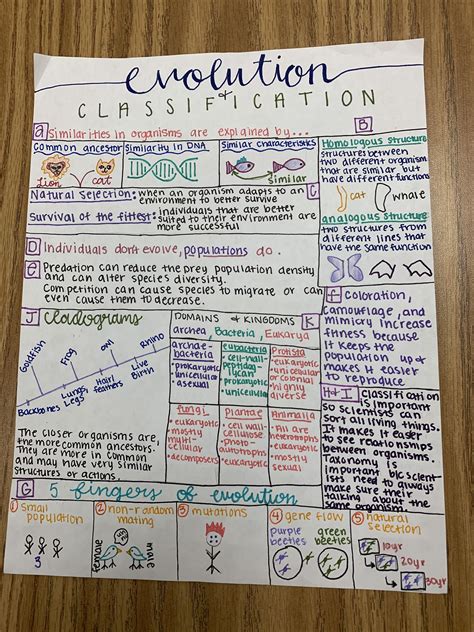 evolution
&
CLASSIFICATION
a Similarities in organisms are explained by...
Common ancestor
Lion
cat
Similarity in DNA
Similar characteristics
similar
B
Homologous structure
structures between
two different organism
that are similar but
have different functions
cat
whale
analogous structure
two structures from
different lines that
have the same function
C
Natural selection: when an organism adapts to an
environment to better survive
Survival of the fittest: individuals that are better
suited to their environment are
more successful
D Individuals don't evolve, populations do.
e Predation can reduce the prey population density
and can alter species diversity.
Competition can cause species to migrate or can
even cause them to decrease.
f coloration,
camouflage, and
mimicry increase
fitness because
it keeps the
population up &
makes it easier
to reproduce
J cladograms
Goldfish
Frog
owl
Rhino
Backbones
Lungs
Legs
Hair/
feathers
Live
Birth
The closer organisms are,
the more common ancestors.
They are more in common
and may have very similar
structures or actions.
DOMAINS & KINGDOMS K
archea, Bacteria, Eukarya
archae-
bacteria
•prokaryotic
•unicellular
•asexual
eubacteria
•cell-wall-
peptidog-
lycan
•prokaryotic
•unicellular
Protista
•eukaryotic
•unicellular
or colonial
•highly
diverse
fungi
•eukaryotic
•mostly
multi-
cellular
•decomposers
plantae
•cell wall-
cellulose
•photo
autotrophic
•eukaryotic
Animalia
•all are
heterotrophs
•eukaryotic
•mostly
sexual
H+I Classification
is important
so scientists can
sort all living things.
It makes it easier
to see relationships
between organisms.
Taxonomy is
important b/c scient-
ists need to always
make sure their
talking about the
same organism.
G 5 fingers of evolution
① small
population
3
② non-random
mating
female
male
③ mutations
④ gene flow
purple
beetles
green
beetles
⑤ natural
selection
10yr
20yr
30yr